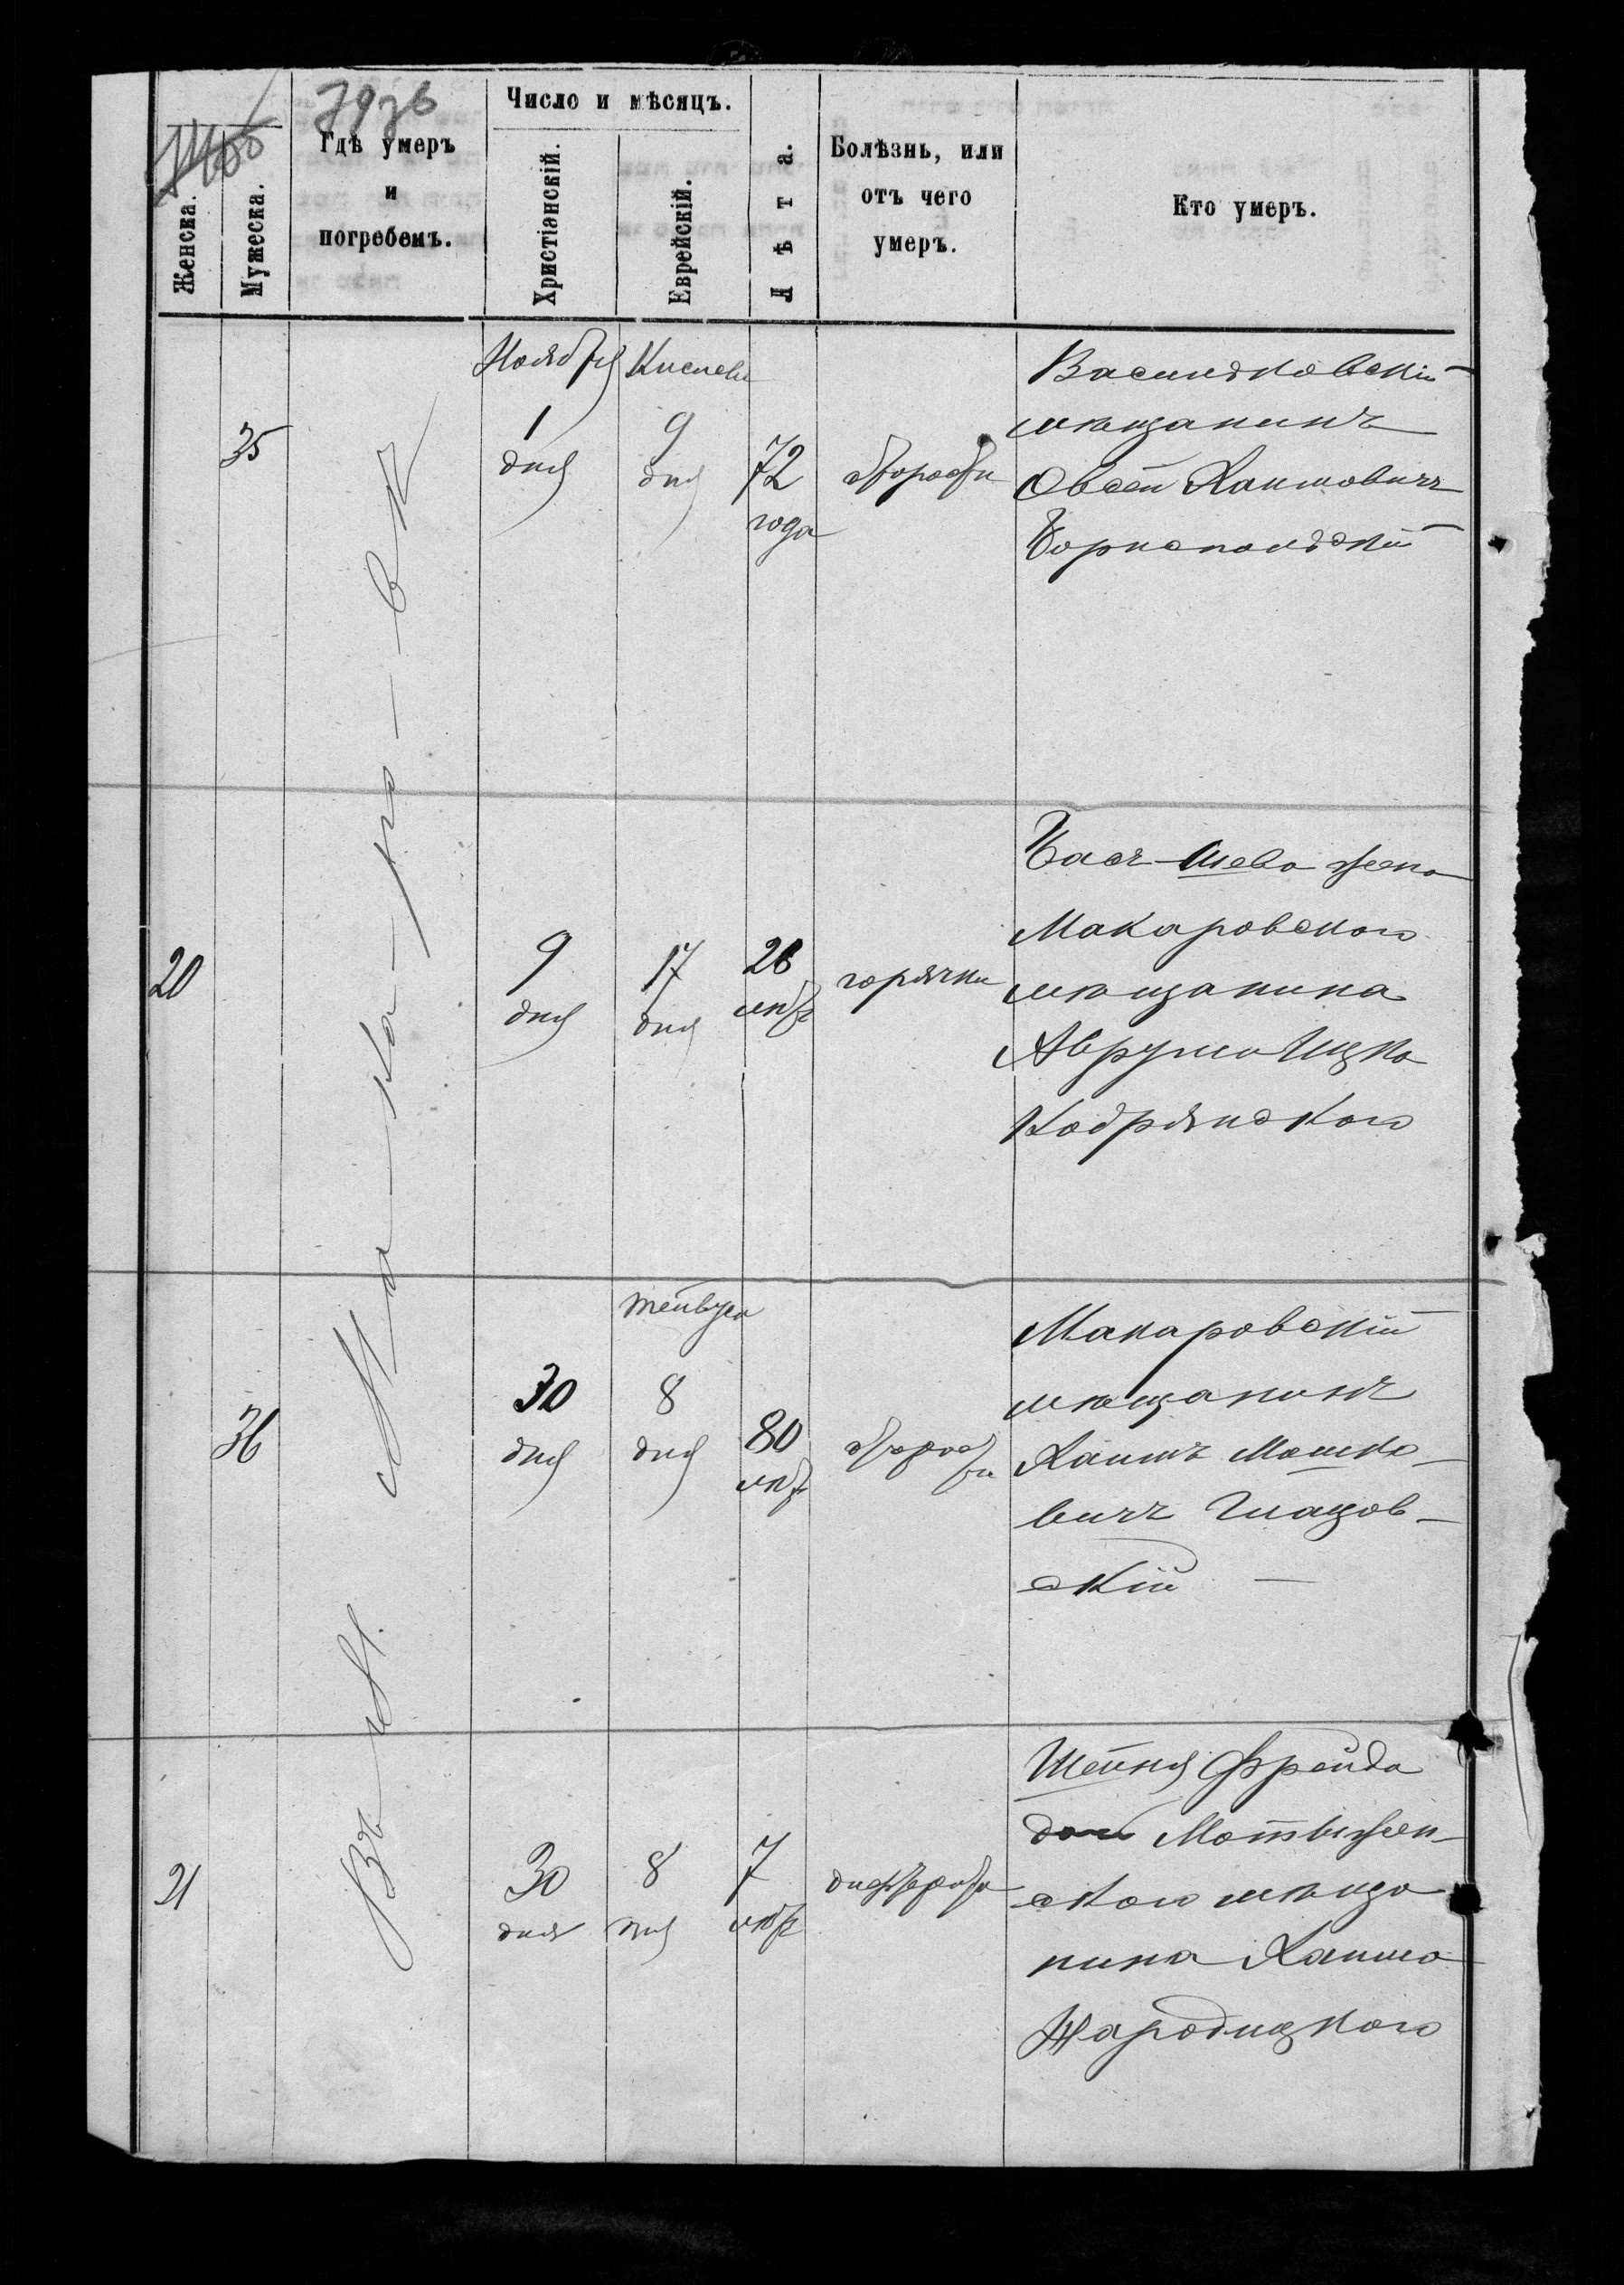 Число и мѣсяцъ.
Женска.
Мужеска.
Гдѣ умеръ
и
погребенъ.
Христіанскій.
Еврейскій.
Лѣта.
Болѣзнь, или
отъ чего
умеръ.
Кто умеръ.
Въ М. Макаровѣ
Ноября
Кислева
35
1
дня
9
дня
72
года
старости
Васильковскій
мѣщанинъ
Овсей Хаимовичъ
Бориспольскій
20
9
дня
17
дня
28
лѣтъ
горячки
Бася-Шева жена
Макаровского
мѣщанина
Аврума Ицка
Кодрянского
Тейвуса
36
30
дня
8
дня
80
лѣтъ
старос
ти
Макаровскій
мѣщанинъ
Хаимъ Мошко-
вичъ Глацов-
скій —
21
30
дня
8
дня
7
лѣтъ
дифтерита
Шейня Фрейда
дочь
ского мѣща
нина Хаима
Народицкого